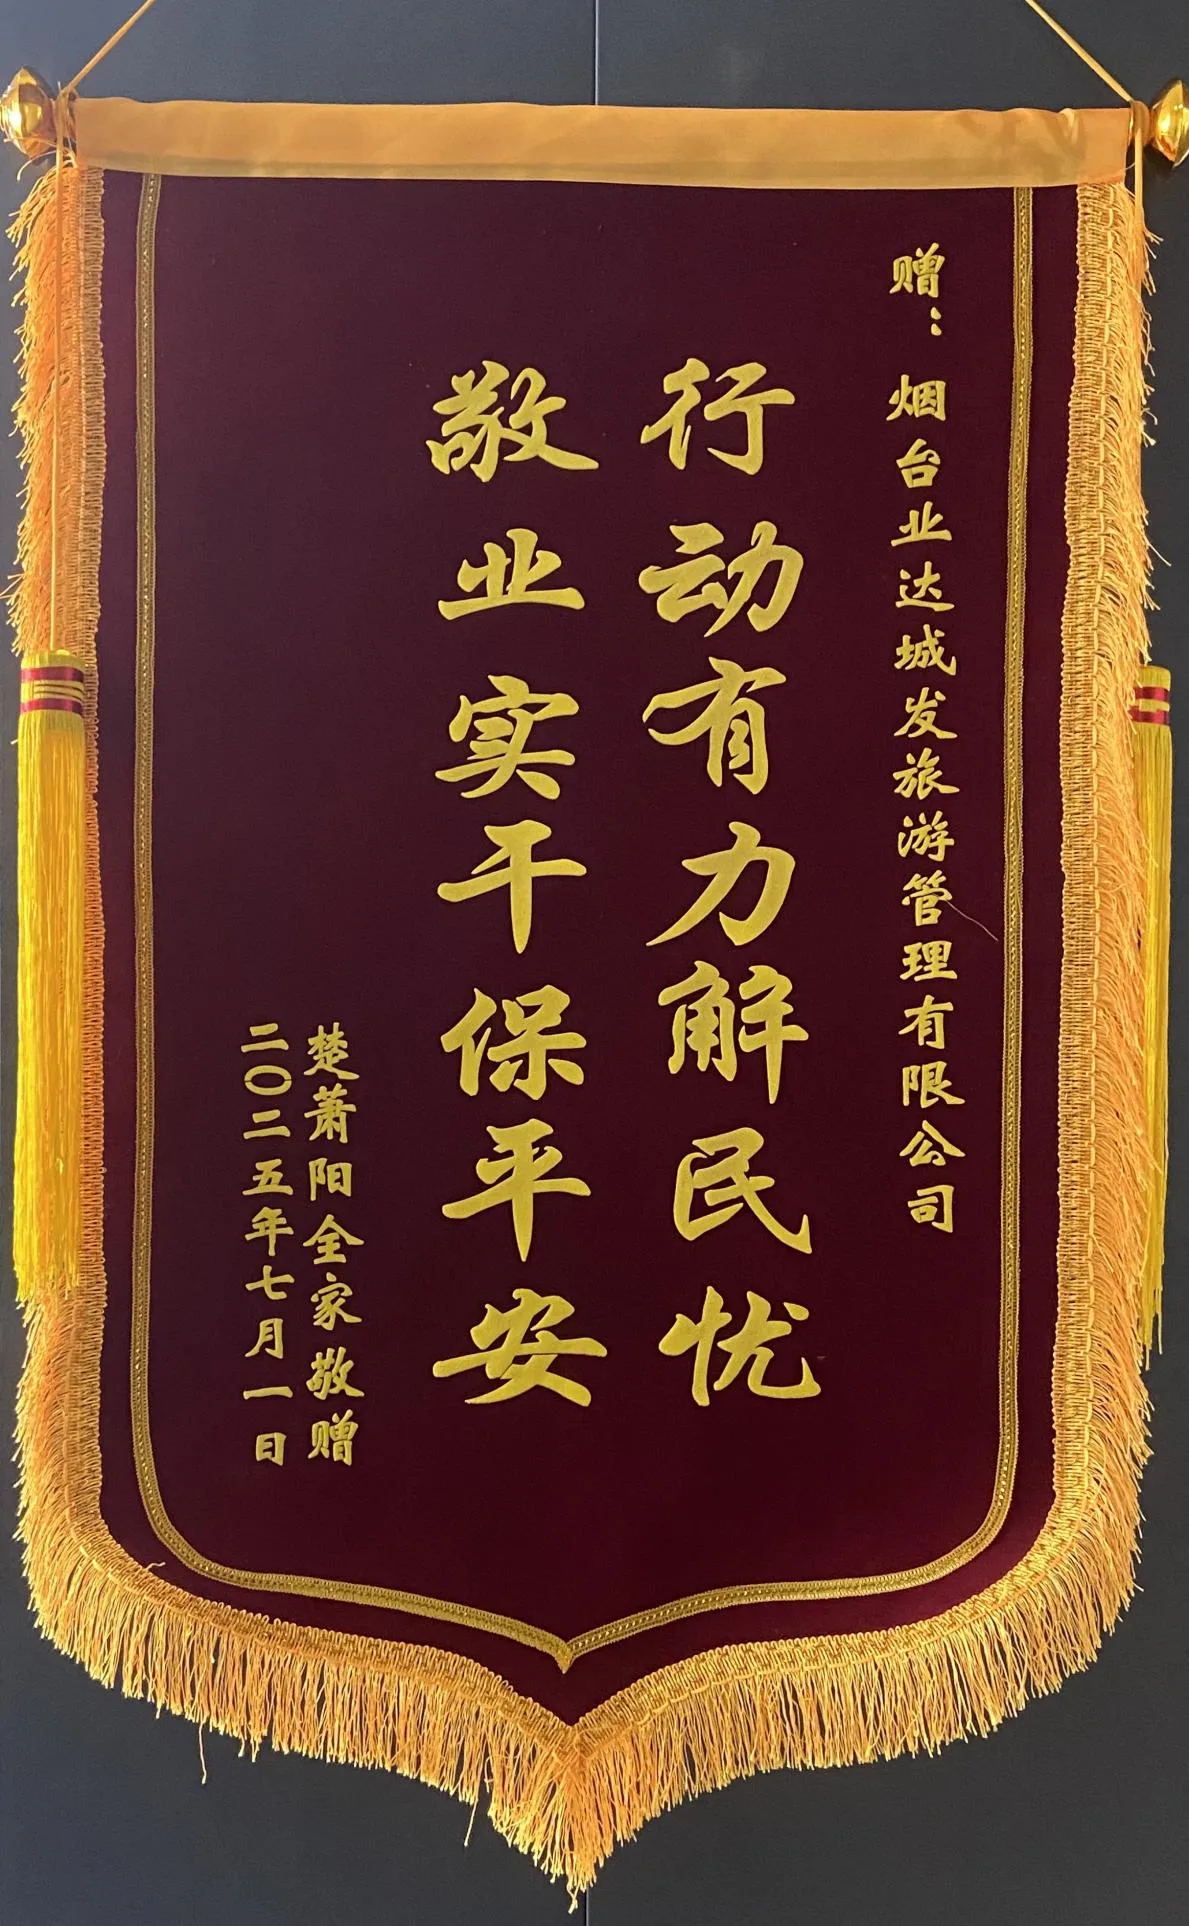 赠：烟台业达城发旅游管理有限公司
行动有力解民忧
敬业实干保平安
楚萧阳全家敬赠
二〇二五年七月一日